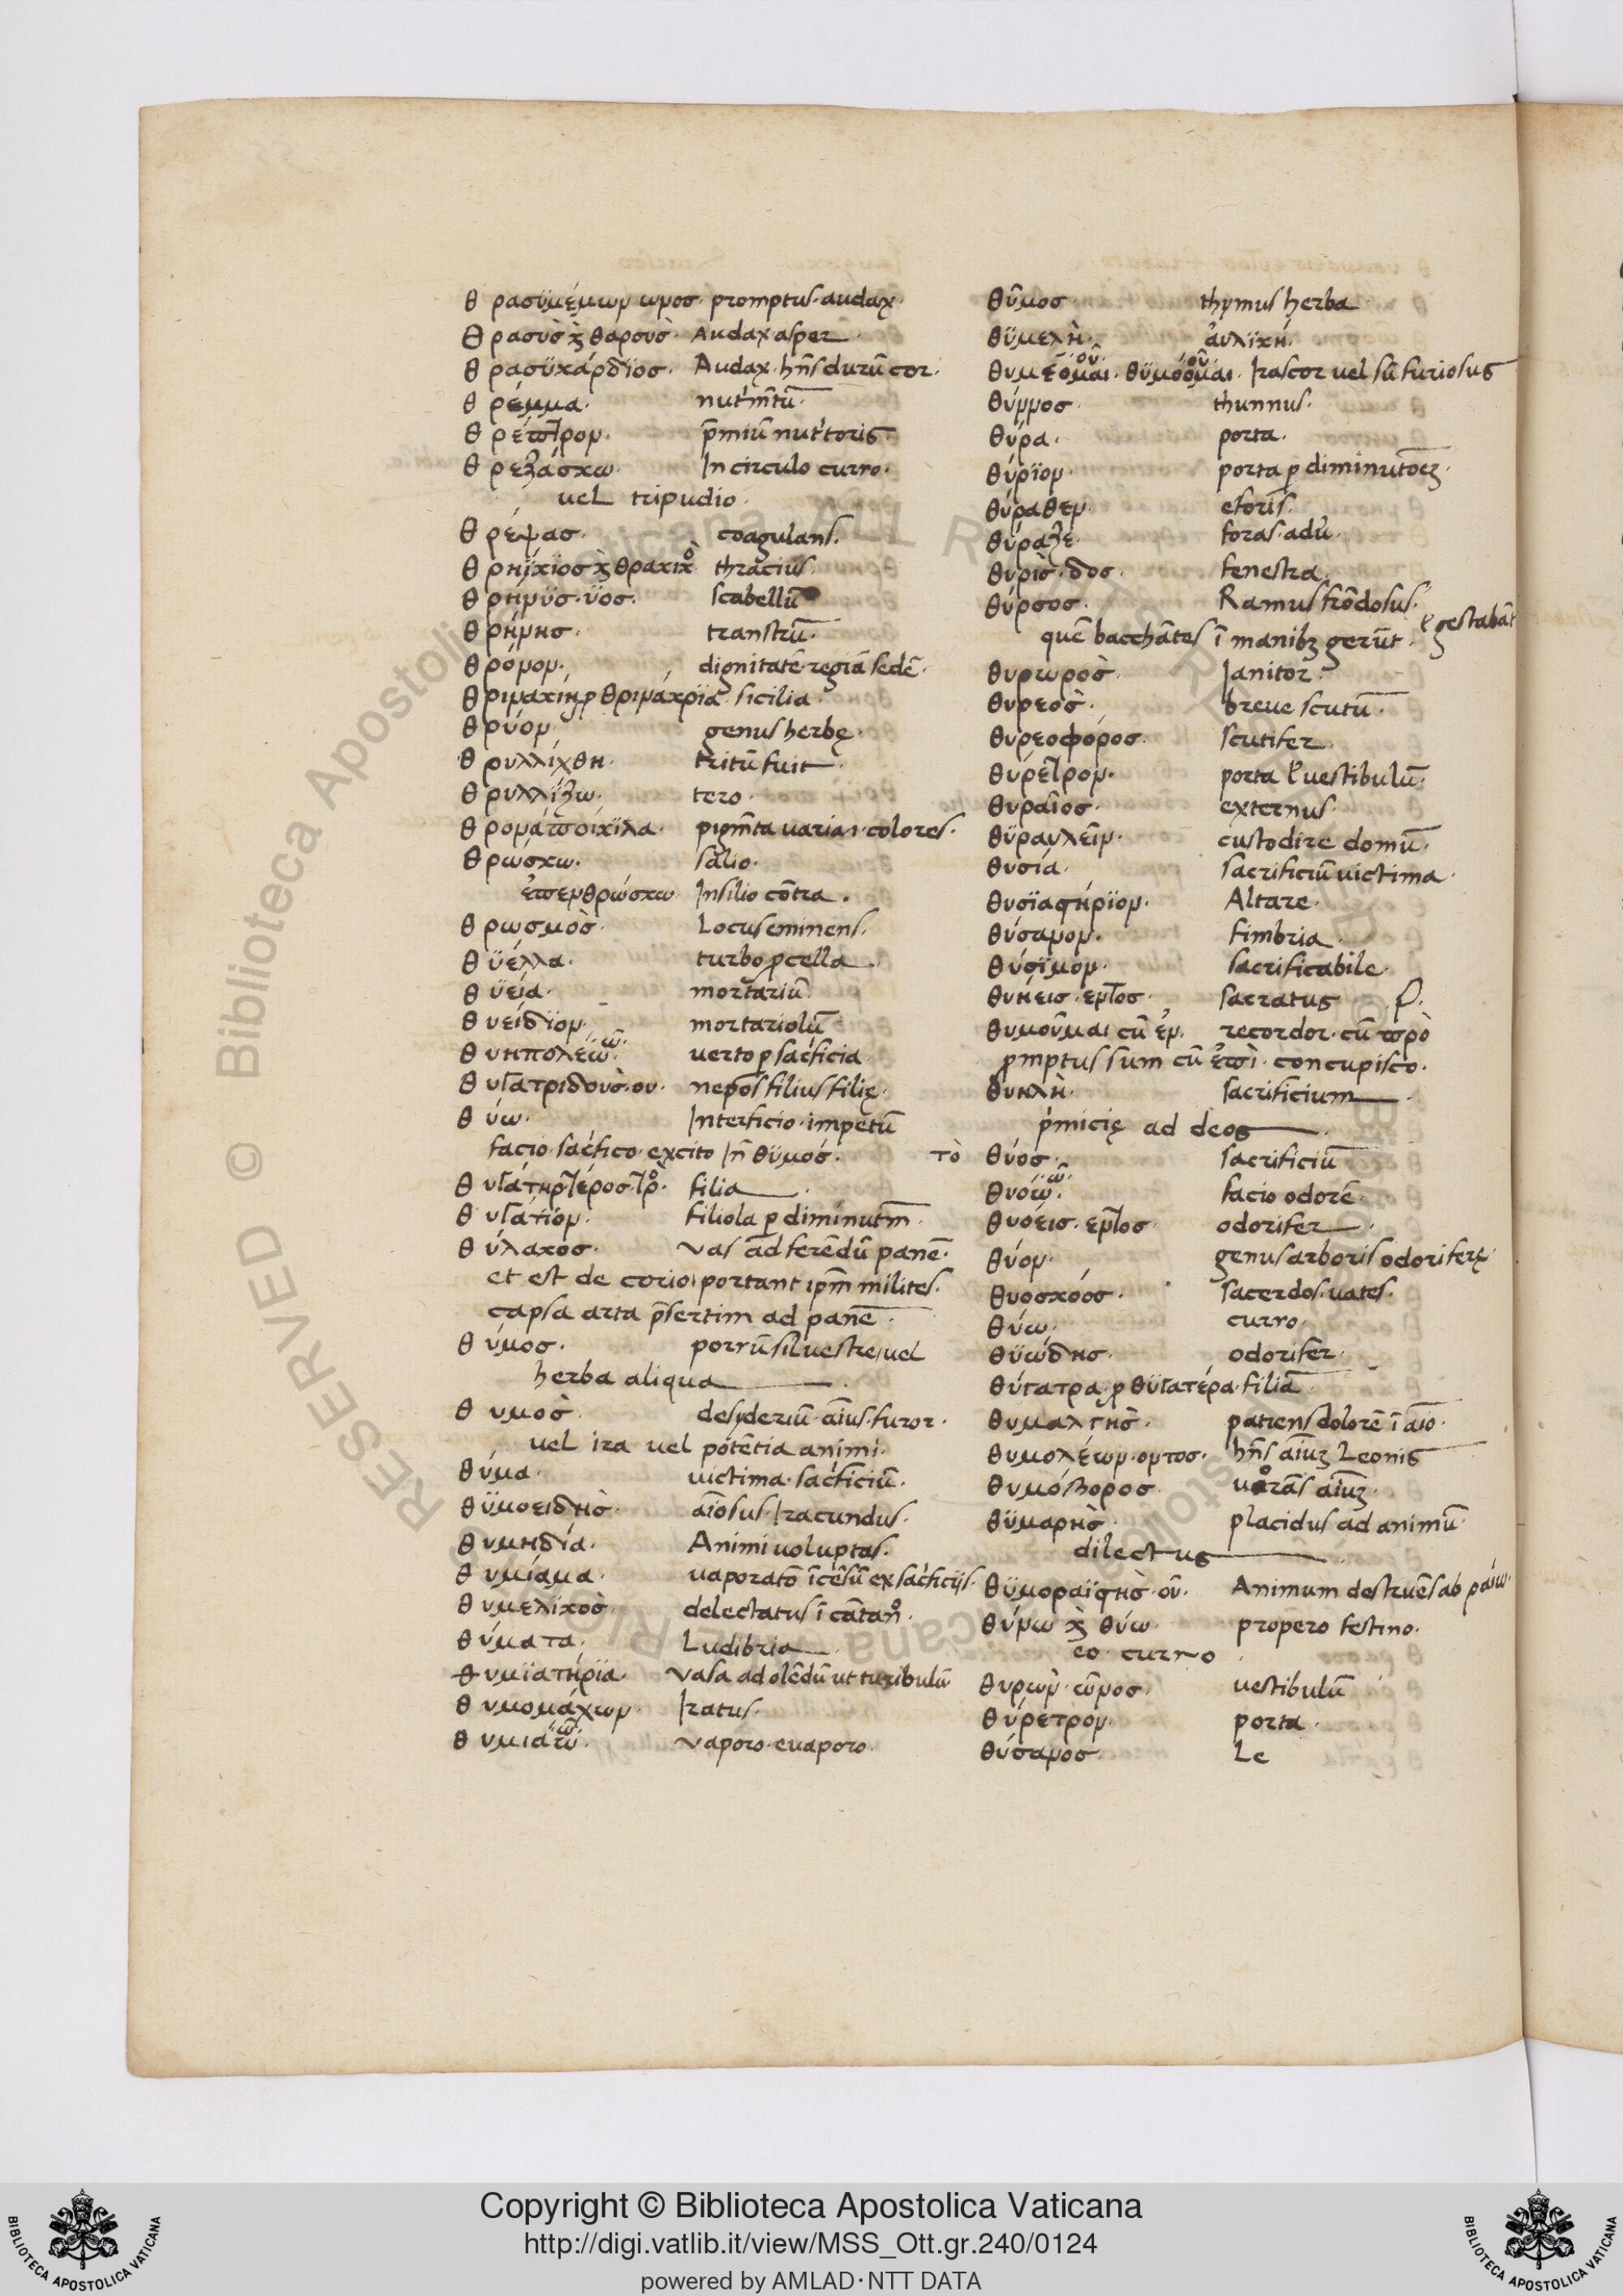 θρασυμέμνων ωνος· promptus· audax·
θρασὺσ κ̀ θαρσυὸ· Audax asper
θρασϋκάρδϊος· Audax· hn̄s durū cor·
θρέμμα· nutrm̄tū·
θρέπτρον· p̄miū nutritoris·
θρεξάσκω· In circulo curro·
uel tripudio·
θρέψασ· coagulans·
θρηΐκϊος κ̀ θρακικὸ thracius·
θρῆνϋσ· ϋος· scabellū
θρήνησ· transtrū·
θρόνον· dignitatē· regiā sedē·
θρινακίη, θρινάκρϊα· sicilia·
θρύον genus herbę·
θρυλλίχθη· tritū fuit
θρυλλίζω· tero·
θρόνα ποικίλα· pigm̄ta uaria· i· colores·
θρώσκω· salio·
ἐπενθρώσκω Insilio cōtra·
θρωσμὸσ· Locus eminens·
θύελλα· turbo procella
θυεία· mortariū·
θυείδϊον· mortariolū
θυηπολέω ῶ· uerto p sacrificia
θυγατριδοὺσ· ου· nepos filius filię·
θύω· Interficio· impetū
facio· sacrifico· excito In̄ θϋμόσ·
θυγάτηρ τέρος τρὸ· filia
θυγάτιον· filiola p diminutm̄·
θύλακοσ· vas ad ferēdū panē·
et est de corio, portant ipm̄ milites·
capsa arta p̄sertim ad panē·
θύμοσ· porrū siluestre, uel
herba aliqua
θυμὸσ· desyderiū· aīus· furor·
uel ira uel potētia animi·
θύμα· uictima· sacrificiū·
θϋμοειδὴσ· aīosus· Iracundus·
θυμηδία· Animi uoluptas·
θυμίαμα· uaporatō īcēsū ex sacrificijs·
θυμελικὸσ· delectatus ī cātan·
θύματα· Ludibria
θυμϊατήρϊα· vasa ad olēdū ut turibulū
θυμομάχων· Iratus·
θυμιάω ῶ· vaporo· euaporo·
θῦμοσ· thymus herba
θϋμελὴ· ἀυλϊκή·
θυμέομαι· οῦ· θϋμόομαι· οῦ· Irascor uel sū furiosus
θύννοσ· thunnus·
θύρα· porta·
θύρϊον· porta p diminutōeȝ·
θύραθεν· eforis·
θύραζε· foras· aduer·
θυρὶσ· δος· fenestra·
θύρσοσ· Ramus frōdosus·
quē bacchātes ī manibȝ gerūt· ł gestabāt
θυρωρὸσ· Ianitor·
θυρεὸσ· breue scutū·
θυρεοφόροσ· scutifer
θύρετρον· porta ł uestibulū·
θυραῖοσ· externus·
θϋραυλεῖν· custodire domū·
θυσία· sacrificiū uictima·
θυσϊαστήρϊον· Altare·
θύσανον· fimbria
θύσϊμον· sacrificabile·
θυήεισ· εντος· sacratus
θυμοῦμαι cū ἐν· recordor· cū πρὸ
promptus sum cū ἐπὶ· concupisco·
θυηλὴ· sacrificium
primicię ad deos
τὸ θύοσ· sacrificiū
θυόω ῶ· facio odorē·
θυόεισ· εντος· odorifer
θύον· genus arboris odoriferę·
θυοσκόοσ· sacerdos· uates·
θύω· curro·
θϋώδησ· odorifer·
θύγατρα, θϋγατέρα· filiā
θυμαλγὴσ· patiens dolorē ī aīo·
θυμολέων· οντοσ· hn̄s aīuȝ Leonis
θυμόβοροσ· uorās aīuȝ·
θϋμαρὴσ· placidus ad animū·
dilectus
θϋμοραϊστὴσ· οῦ· Animum destruēs ab ῥαίω·
θύνω κ̀ θύω· propero festino·
eo curro
θυρὼν· ῶνοσ· uestibulū
θύρετρον· porta·
θύσανοσ· Le
Copyright © Biblioteca Apostolica Vaticana
http://digi.vatlib.it/view/MSS_Ott.gr.240/0124
powered by AMLAD·NTT DATA
BIBLIOTECA APOSTOLICA VATICANA
BIBLIOTECA APOSTOLICA VATICANA